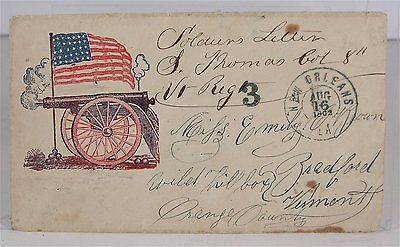 Soldiers Letter
S. Thomas Col 8"
Vt Reg
3
NEW ORLEANS
AUG
16
1862
LA
Miss Brown
Bradford
Wild Hill box
Vermont
Orange County